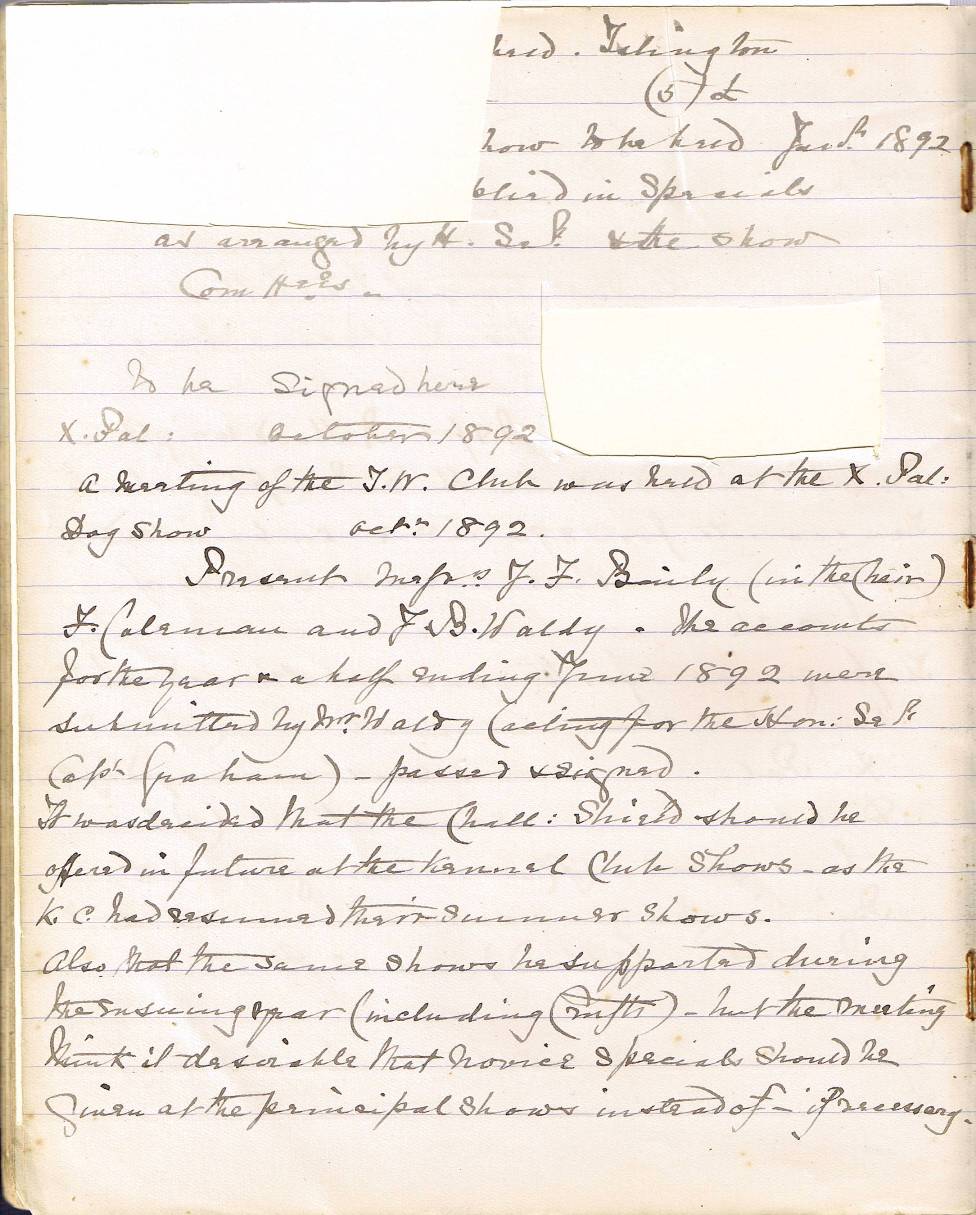 held. Islington
(5) £
how to be held 1892
in Specials
as arranged by H. Secy. & the Show
Committees.
To be Signed here
X. Pal: October 1892
A Meeting of the I.W. Club was held at the X. Pal:
Dog Show Octr. 1892.
Present Messrs. J. F. Baily (in the Chair)
F. Coleman and F. B. Waldy. The accounts
for the year & a half ending June 1892 were
submitted by Mr. Waldy (acting for the Hon: Secy
Capt Graham) – passed & signed.
It was decided that the Chall: Shield should be
offered in future at the Kennel Club Shows – as the
K. C. had resumed their Summer Shows.
Also that the same Shows be supported during
the ensuing year (including Crufts) – but the Meeting
think it desirable that Novice Specials should be
Given at the principal Shows instead of – if necessary.